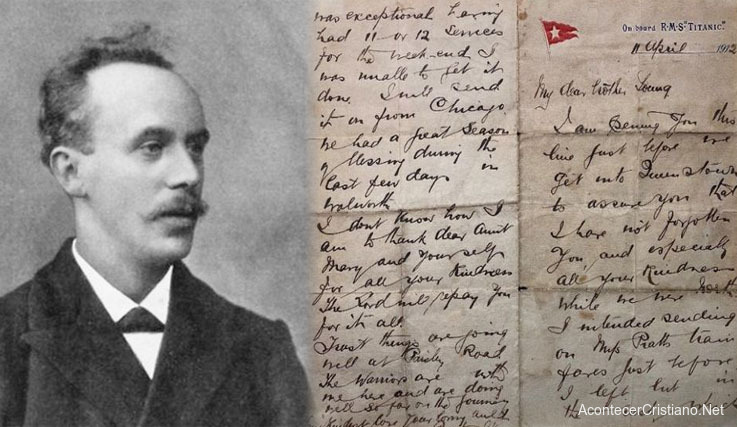 On board R·M·S "TITANIC."
11 April 1912
My dear brother Young
I am penning you this
line just before we
get into Queenstown
to assure you that
I have not forgotten
you, and especially
all your kindness
while we were North
I intended sending
on Mrs Pratts train
fares just before
I left but in
the
was exceptional having
had 11 or 12 Services
for the week-end I
was unable to get it
done. I will send
it on from Chicago
We had a great Season
of blessing during the
last few days in
Walworth
I dont Know how I
am to thank dear Aunt
Mary and yourself
for all your Kindness
The Lord will repay you
for it all.
Trust things are going
well at Paisley Road
The Warriors are with
me here and are doing
well so far on the Journey
AcontecerCristiano.Net